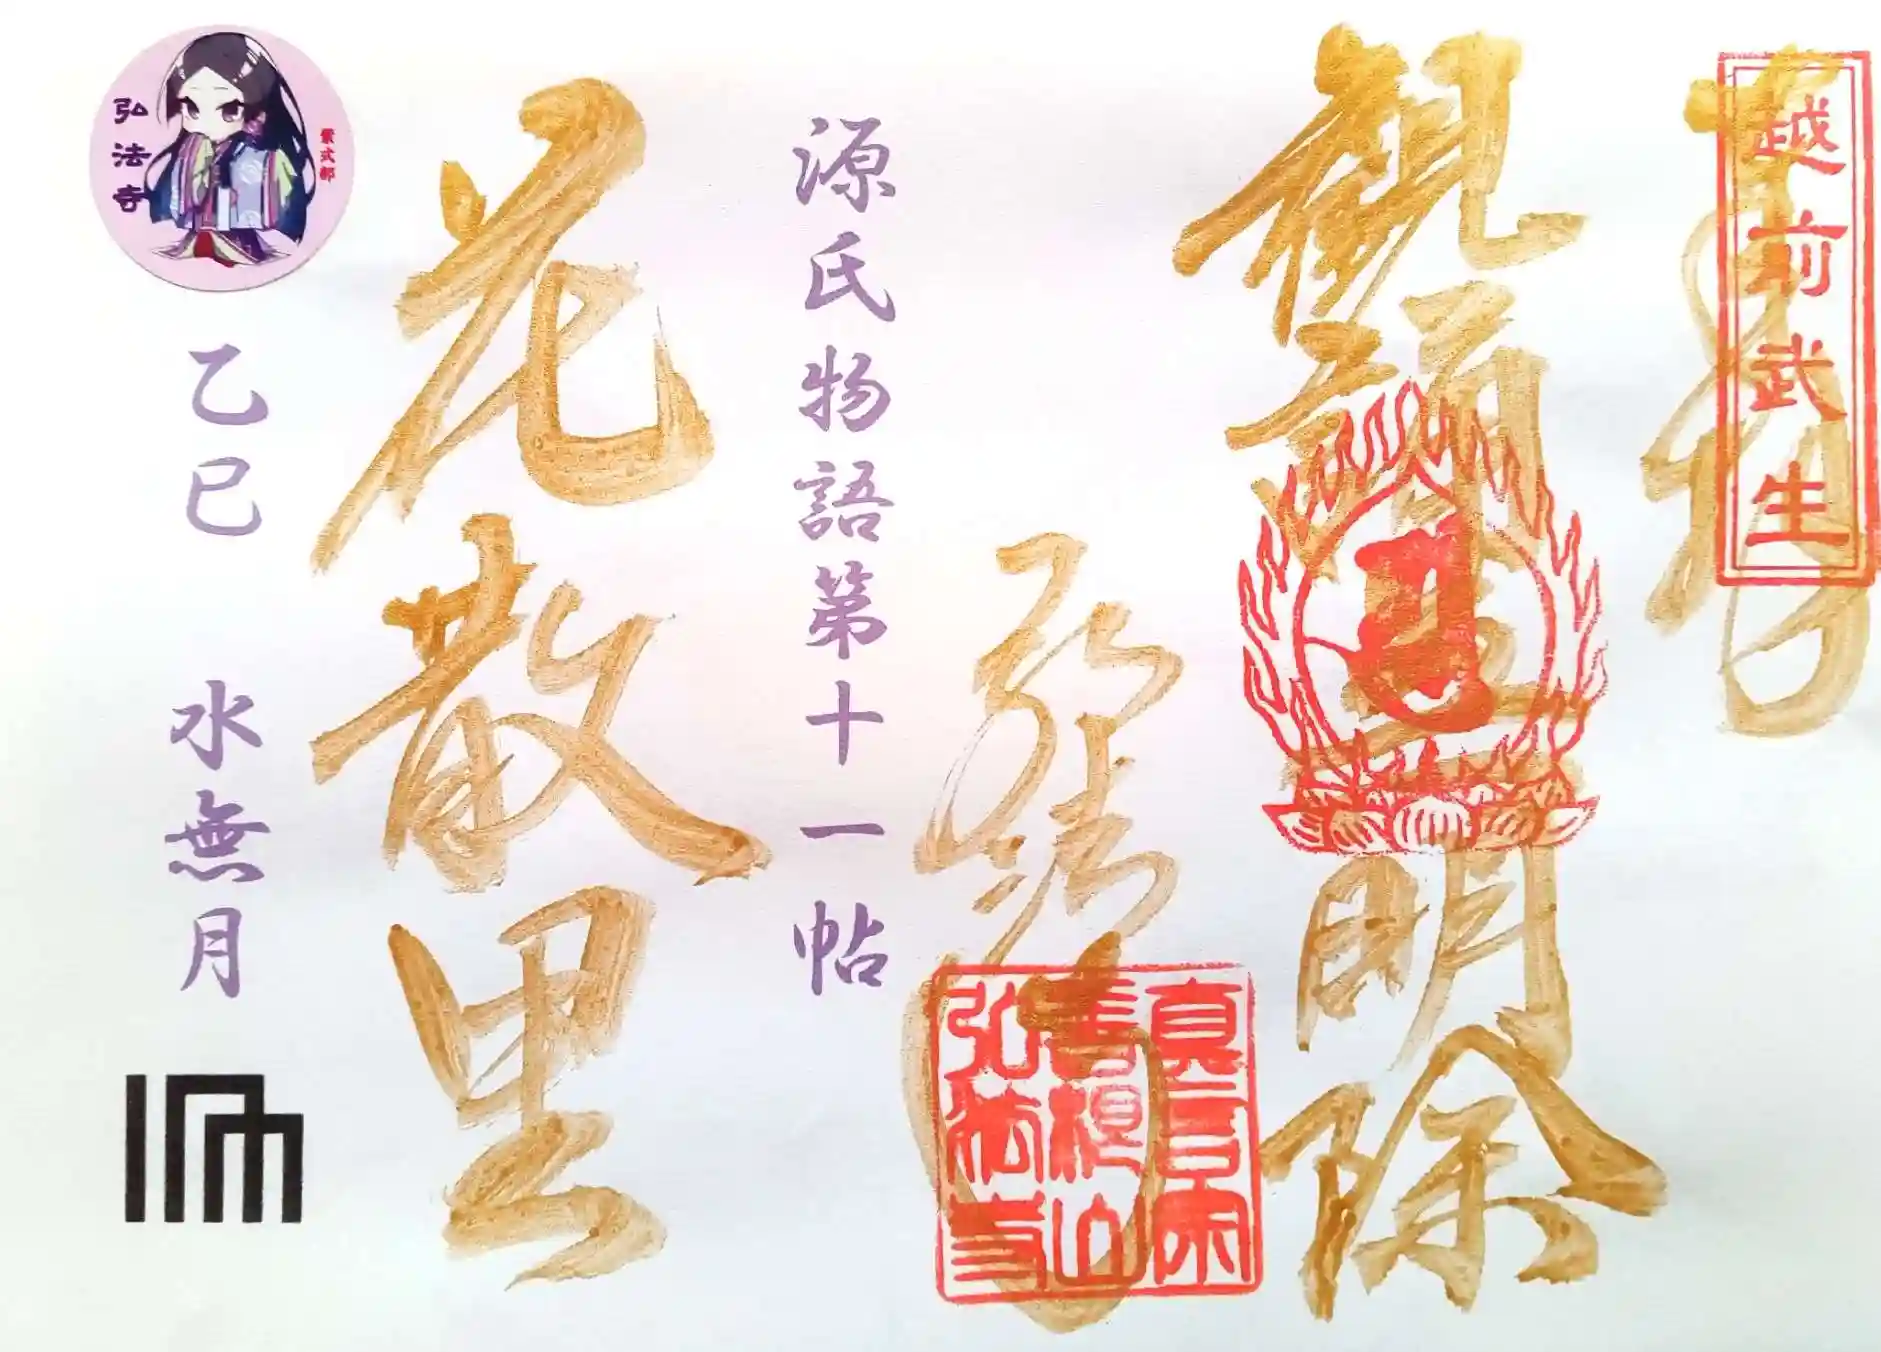 越前武生
奉拝
観諸法明除
真言宗
善根山
弘法寺
弘法寺
源氏物語第十一帖
花散里
紫式部
弘法寺
乙巳 水無月